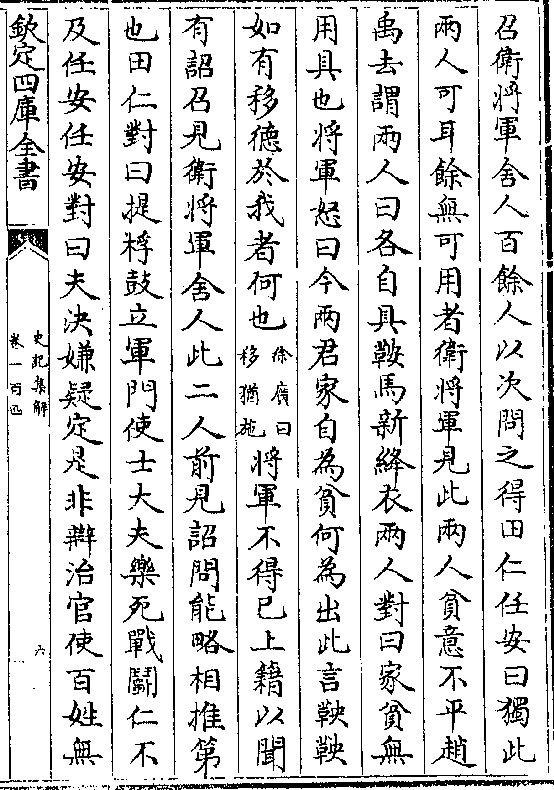 召衛將軍舍人百餘人以次問之得田仁任安曰獨此
兩人可耳餘無可用者衛將軍見此兩人貧意不平趙
禹去謂兩人曰各自具鞍馬新絳衣兩人對曰家貧無
用具也將軍怒曰今兩君家自為貧何為出此言鞅鞅
如有移德於我者何也徐廣曰移猶施將軍不得已上籍以聞
有詔召見衛將軍舍人此二人前見詔問能略相推第
也田仁對曰提桴鼓立軍門使士大夫樂死戰鬭仁不
及任安任安對曰夫決嫌疑定是非辯治官使百姓無
欽定四庫全書
史記集解
卷一百四
六